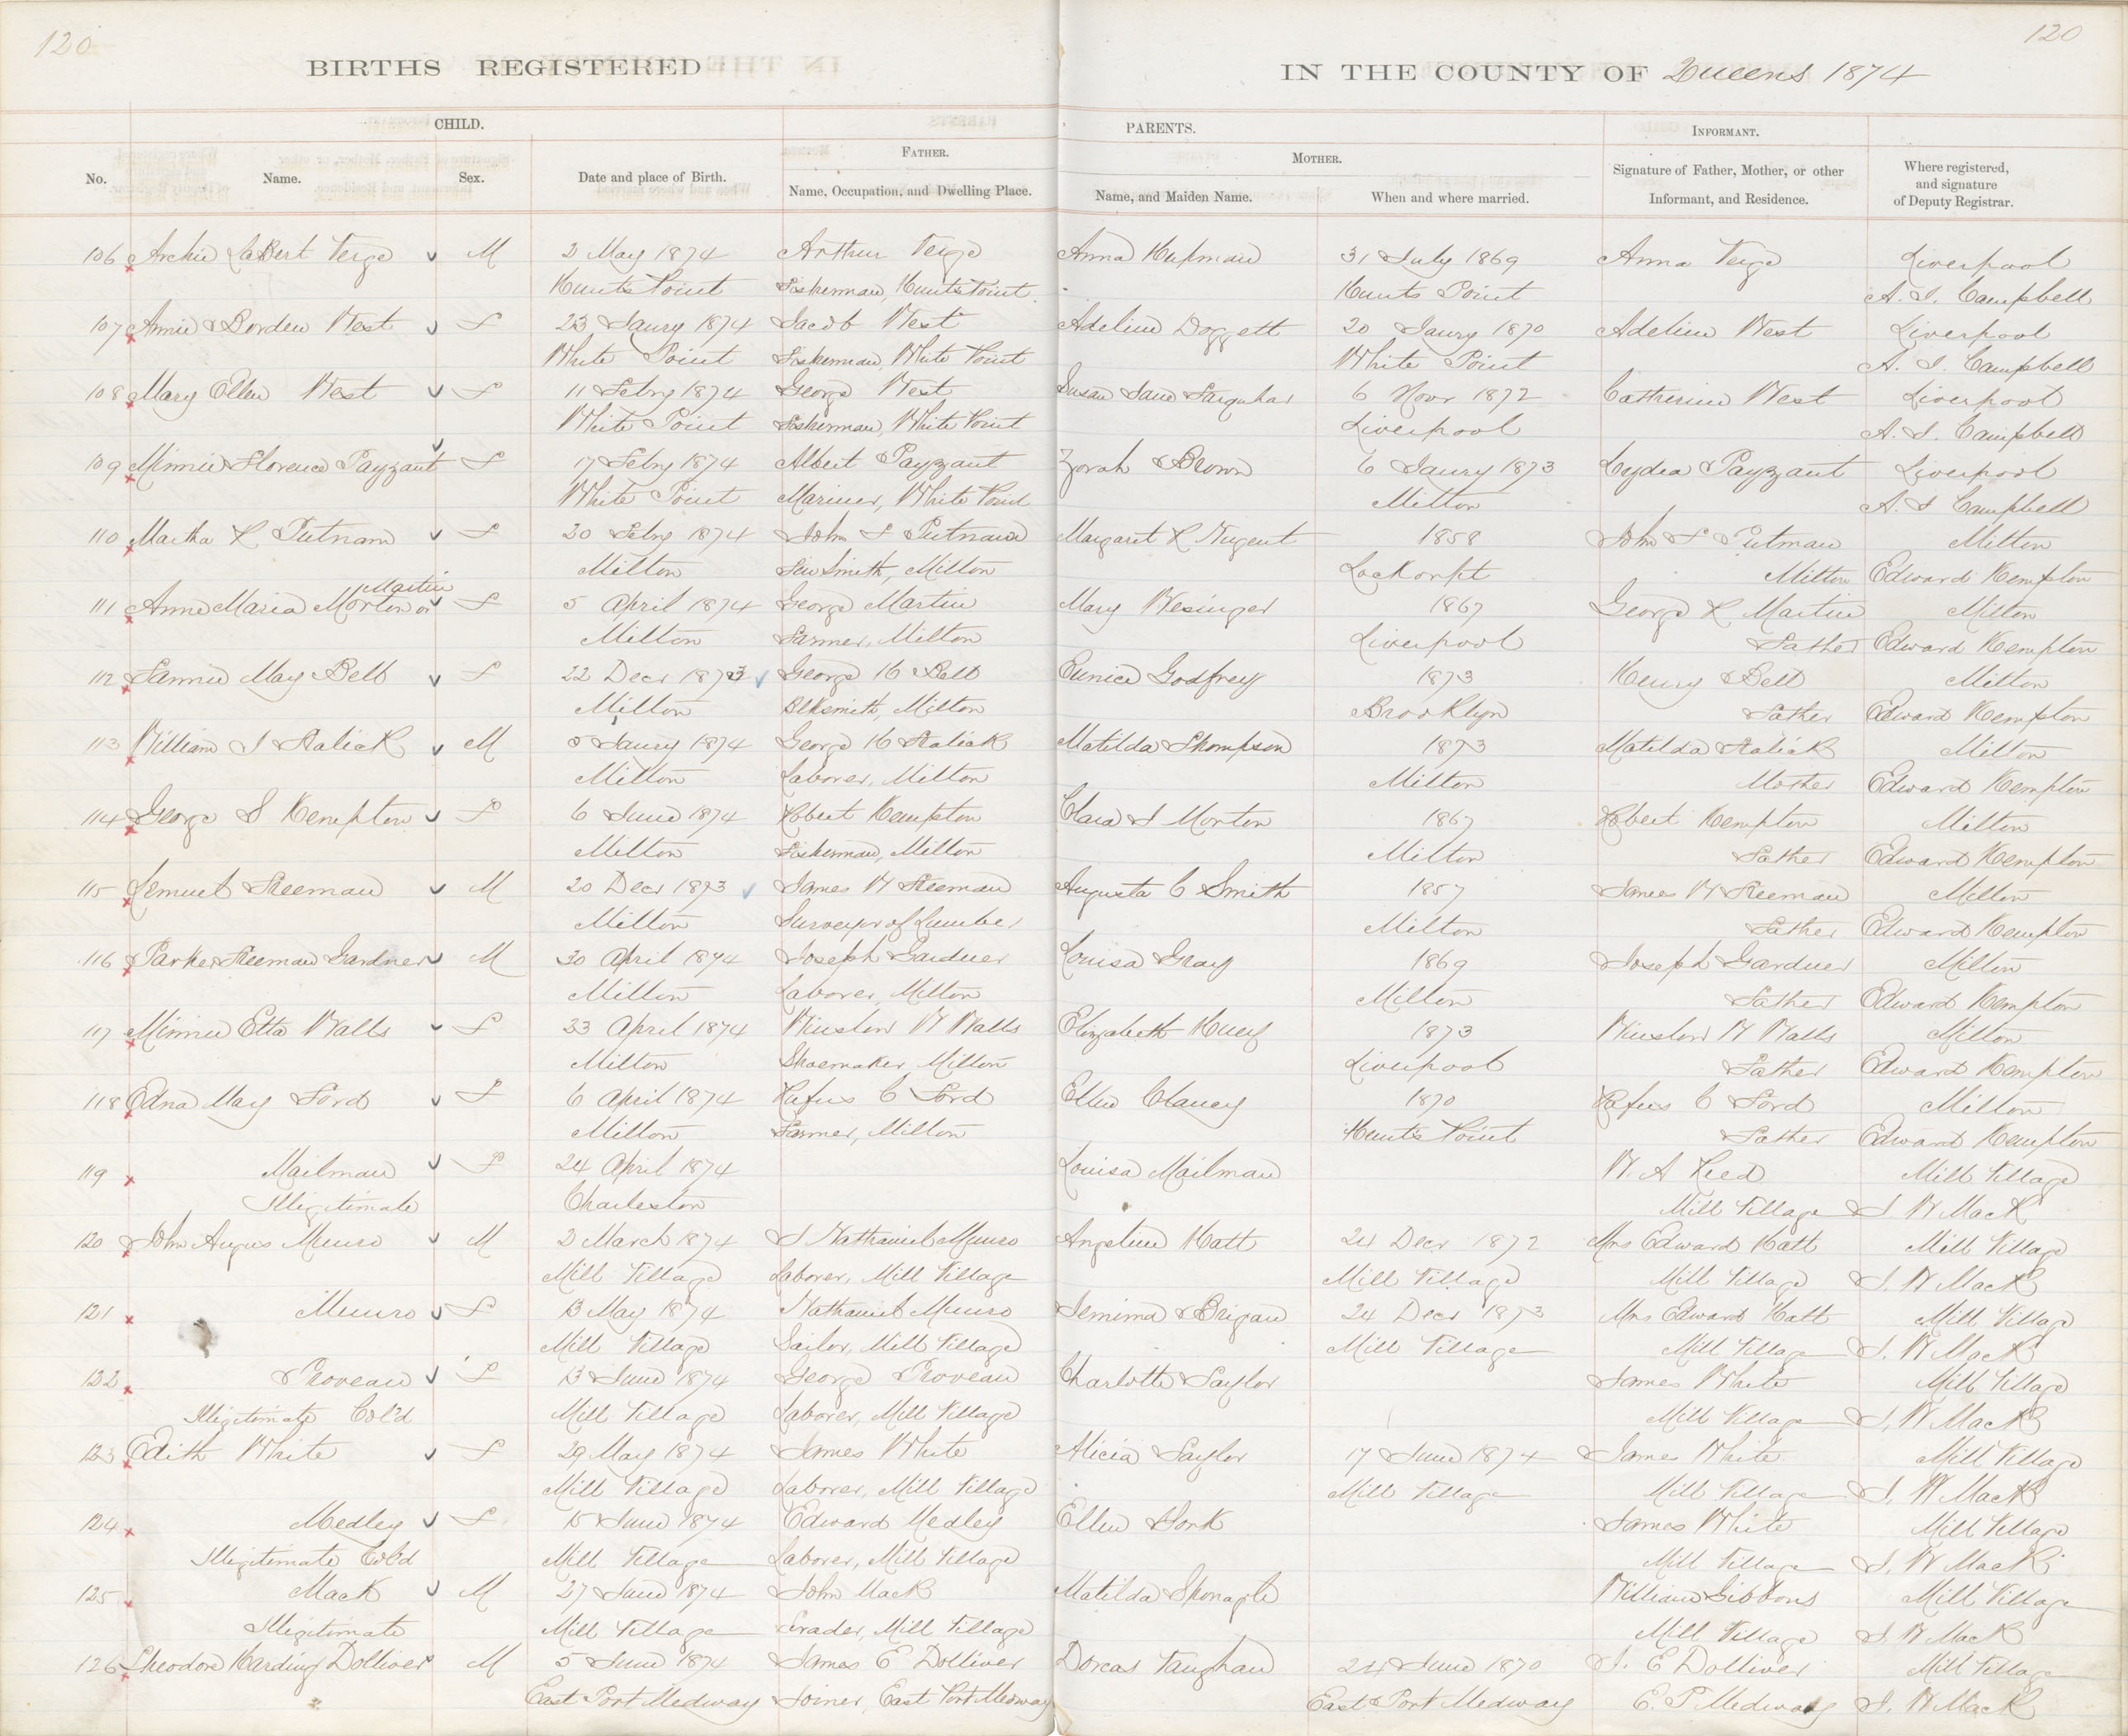 120
120
BIRTHS REGISTERED
IN THE COUNTY OF Queens 1874
CHILD.
PARENTS.
INFORMANT.
FATHER.
MOTHER.
No.
Name.
Sex.
Date and place of Birth.
Name, Occupation, and Dwelling Place.
Name, and Maiden Name.
When and where married.
Signature of Father, Mother, or other
Informant, and Residence.
Where registered,
and signature
of Deputy Registrar.
106 Archie Teige M 2 May 1874 Arthur Teige Anna Hupman 31 July 1869 Anna Teige Liverpool
Hunts Point Fisherman, Hunts Point Hunts Point A. J. Campbell
107 Annie Borden West F 23 Jany 1874 Jacob West Adeline Doggett 20 Jany 1870 Adeline West Liverpool
White Point Fisherman, White Point White Point A. J. Campbell
108 Mary Ellen West F 11 Febry 1874 George West Susan Jane Farquhar 6 Novr 1872 Catherine West Liverpool
White Point Fisherman, White Point Liverpool A. J. Campbell
109 Minnie Florence Payzant F 17 Febry 1874 Albert Payzant Zorah Brown 6 Jaury 1873 Lydia Payzant Liverpool
White Point Mariner, White Point Milton A. J. Campbell
110 Martha R Putnam F 20 Febry 1874 John F Putnam Margaret R Nugent 1858 John F Putman Milton
Milton Milton Milton Edward Kempton
Martin
111 Annie Maria Morton or F 5 April 1874 George Martin Mary Wesinger 1867 George R Martin Milton
Milton Farmer, Milton Liverpool Father Edward Kempton
112 Fannie May Bell F 22 Decr 1873 George H Bell Eunice Godfrey 1873 Henry Bell Milton
Milton Blksmith, Milton Brooklyn Father Edward Kempton
113 William J Stalick M 5 Jaury 1874 George H Stalick Matilda Thompson 1873 Matilda Stalick Milton
Milton Laborer, Milton Milton Mother Edward Kempton
114 George S Kempton F 6 June 1874 Robert Kempton Clara J Morton 1867 Robert Kempton Milton
Milton Fisherman, Milton Milton Father Edward Kempton
115 Lemuel Freeman M 20 Decr 1873 James W Freeman Augusta C Smith 1857 James W Freeman Milton
Milton Surveyor of Lumber Milton Father Edward Kempton
116 Parker Freeman Gardner M 30 April 1874 Joseph Gardner Louisa Gray 1869 Joseph Gardner Milton
Milton Laborer, Milton Milton Father Edward Kempton
117 Minnie Etta Walls F 23 April 1874 Winslow W Walls Elizabeth Huey 1873 Winslow W Walls Milton
Milton Shoemaker, Milton Liverpool Father Edward Kempton
118 Edna May Ford F 6 April 1874 Rufus C Ford Ellen Clancy 1870 Rufus C Ford Milton
Milton Farmer, Milton Hunts Point Father Edward Kempton
119 Mailman F 24 April 1874 Louisa Mailman W. A Reed Mill Village
Illigitimate Charleston Mill Village J. W Mack
120 John Angus Munro M 2 March 1874 J Nathaniel Munro Angeline Hatt 24 Decr 1872 Mrs Edward Hatt Mill Village
Mill Village Laborer, Mill Village Mill Village Mill Village J. W Mack
121 Munro F 13 May 1874 Nathaniel Munro Jemima Brigan 24 Decr 1873 Mrs Edward Hatt Mill Village
Mill Village Sailor, Mill Village Mill Village Mill Village J. W Mack
122 Proveau F 13 June 1874 George Proveau Charlotte Taylor James White Mill Village
Illigitimate Col'd Mill Village Laborer, Mill Village Mill Village J. W Mack
123 Edith White F 29 May 1874 James White Alicia Taylor 17 June 1874 James White Mill Village
Mill Village Laborer, Mill Village Mill Village Mill Village J. W Mack
124 Medley F 15 June 1874 Edward Medley Ellen York James White Mill Village
Illigitimate Col'd Mill Village Laborer, Mill Village Mill Village J. W Mack
125 Mack M 27 June 1874 John Mack Matilda William Gibbons Mill Village
Illigitimate Mill Village Trader, Mill Village Mill Village J. W Mack
126 Theodore Harding Dolliver M 5 June 1874 James E Dolliver Dorcas Vaughan June 1870 J. E Dolliver Mill Village
East Port Medway Joiner, East Port Medway East Port Medway E. P. Medway J. W Mack